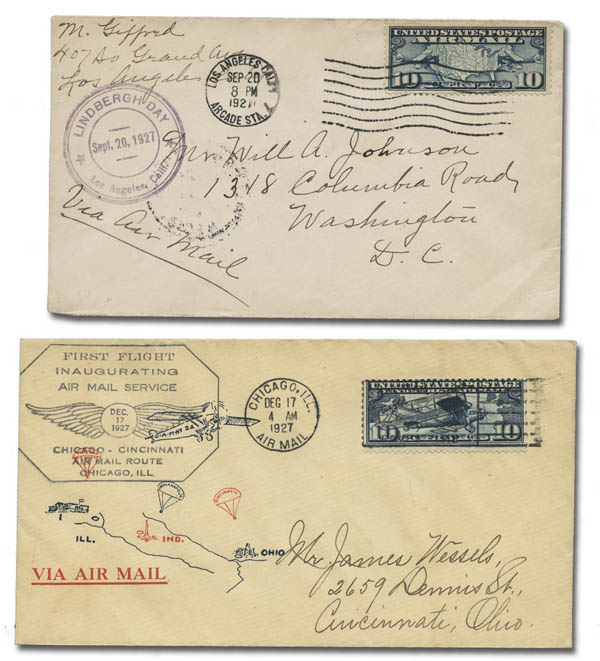 M. Gifford
407 So Grand Ave
Los Angeles
LOS ANGELES, CALIF.
SEP 20
8 PM
1927
ARCADE STA.
UNITED STATES POSTAGE
AIR MAIL
10 10
LINDBERGH DAY
Sept. 20, 1927
Los Angeles, Calif.
Mr Will A. Johnson
1318 Columbia Road
Washington
D. C.
Via Air Mail
FIRST FLIGHT
INAUGURATING
AIR MAIL SERVICE
DEC.
17
1927
C-A-M-No 24
CHICAGO - CINCINNATI
AIR MAIL ROUTE
CHICAGO, ILL
CHICAGO, ILL.
DEC 17
4 AM
1927
AIR MAIL
UNITED STATES POSTAGE
10 10
INDIANAPOLIS
CINCINNATI
ILL.
IND.
OHIO
VIA AIR MAIL
Mr James Wessels,
2659 Dennis St.,
Cincinnati, Ohio.